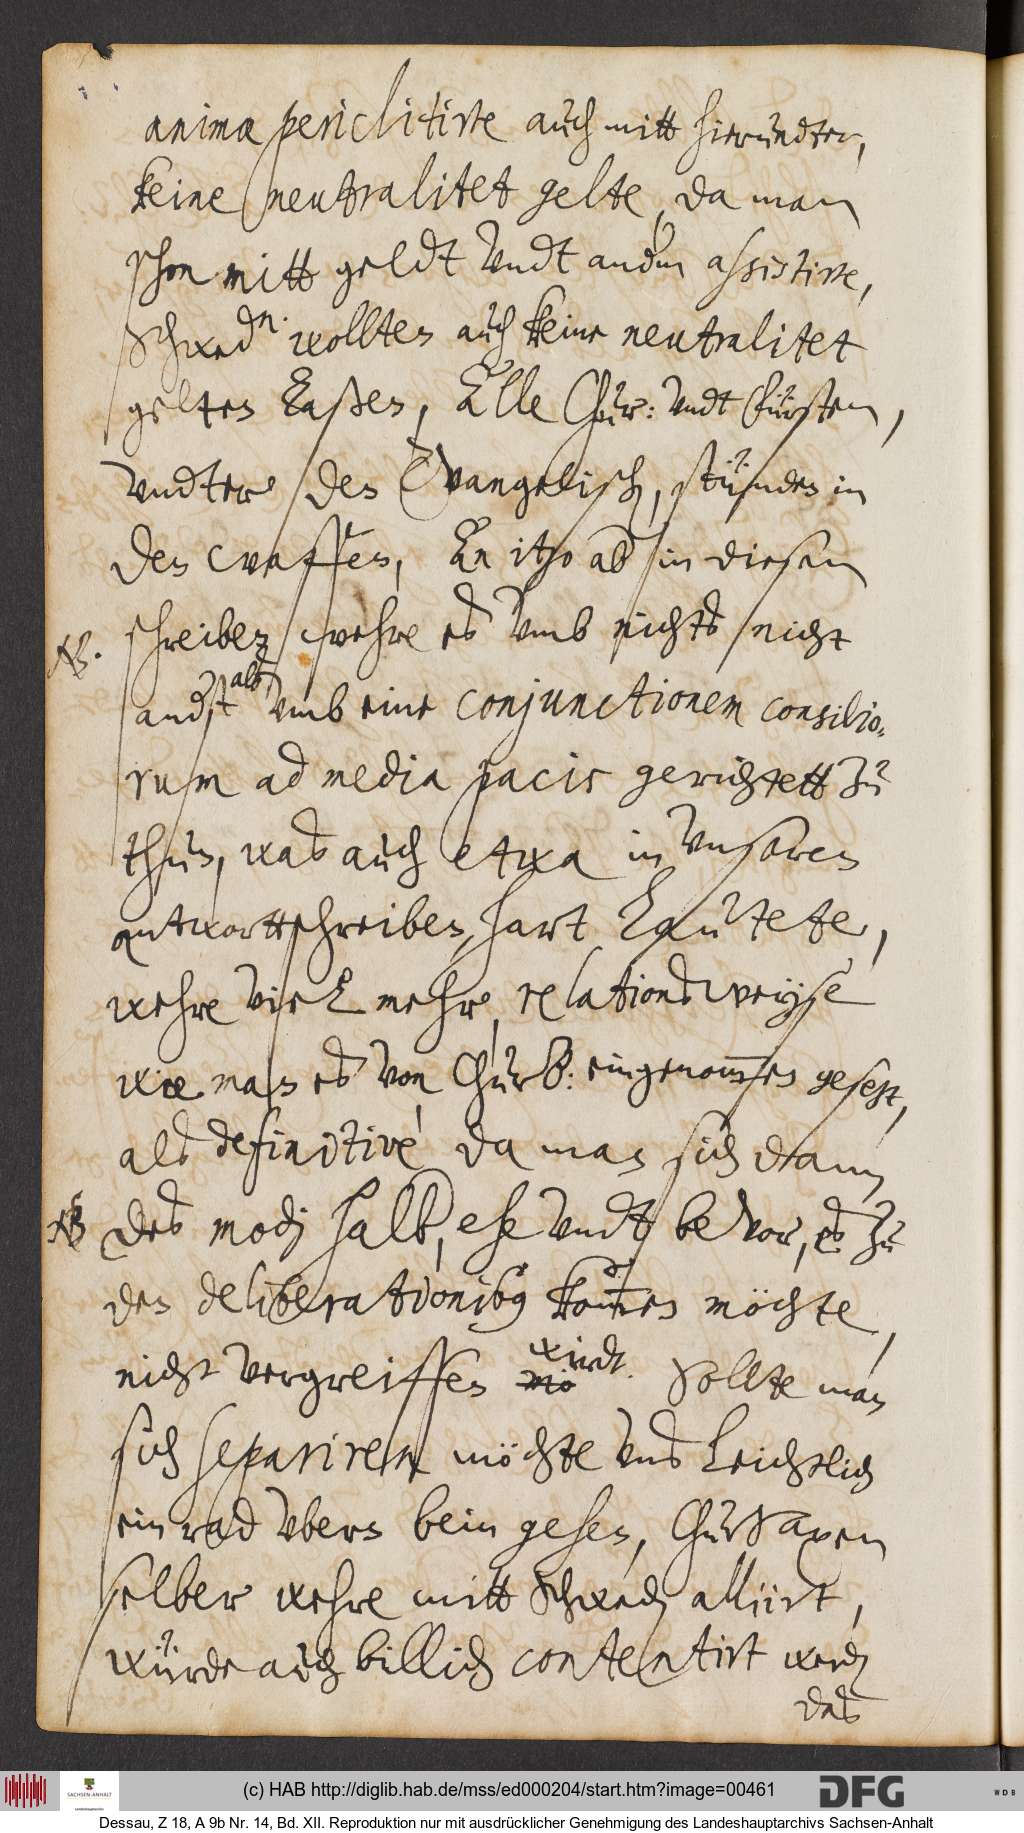 animæ periclitirte auch mitt hierundter,
keine neutralitet gelte, da man
schon mitt geldt Undt andern assistirte,
Schweden. wollten auch keine neutralitet
gelten laßen, Alle Chur: Undt Fürsten,
Undter den Evangelisch, stünden in
den waffen, An itzo ab in diesem
NB. schreiben wehre es Umb nichts nicht
anderst als Umb eine conjunctionem consilio-
rum ad media pacis gerichtett zu
thun, was auch etwa in Unseren
antworttschreiben, hart lautete,
wehre viel mehr, relationsweyse
wie man es von ChurB: eingenommen gesetzt,
als definitivè da man sich dann
NB des modj halb, ehe Undt bevor, es zu
den deliberationibus kommen möchte,
nicht vergreiffen mö wirdt. Sollte man
sich separiren möchte Uns leichtlich
ein rad Ubers bein gehen, ChurSaxen
selber wehre mitt Schweden alliirt,
würde auch billich contentirt werden
das
(c) HAB http://diglib.hab.de/mss/ed000204/start.htm?image=00461
SACHSEN-ANHALT
DFG
WDB
Dessau, Z 18, A 9b Nr. 14, Bd. XII. Reproduktion nur mit ausdrücklicher Genehmigung des Landeshauptarchivs Sachsen-Anhalt